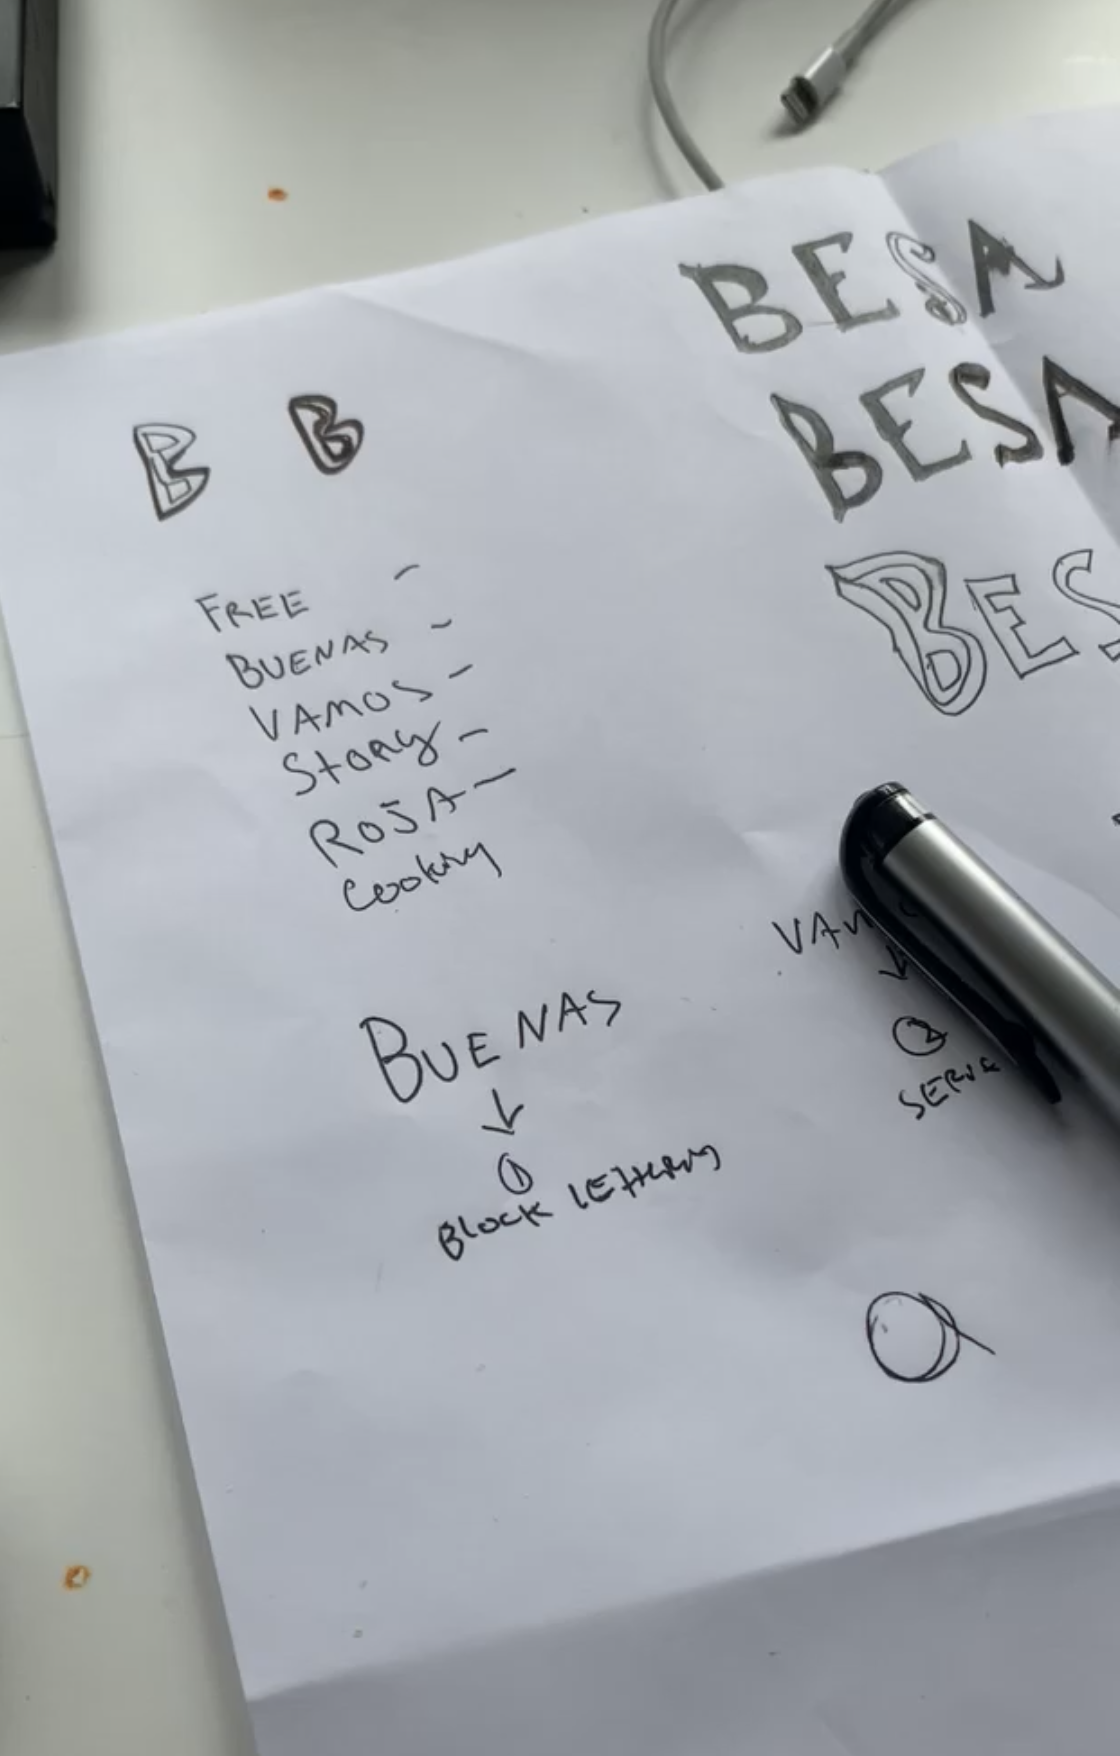 BESA
BESA
BES
B B
FREE -
BUENAS -
VAMOS -
StORy -
ROJA -
Cooking
BUENAS
↓
①
Block lettering
VAM
↓
②
SERVE